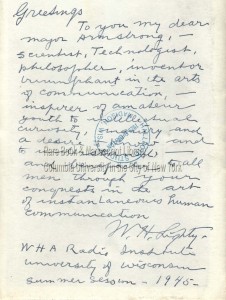 Greetings
To you my dear
major Armstrong, —
scientist, Technologist,
philosopher, inventor
triumphant in the arts
of communication, —
inspirer of amateur
youth to intellectual
curiosity, and
a desire and
to
and to all
men through your
conquests in the art
of instantaneous human
communication
W. H. Lighty —
WHA Radio Institute
university of wisconsin
summer session — 1945 —
Rare Book & Manuscript Library
Columbia University in the City of New York